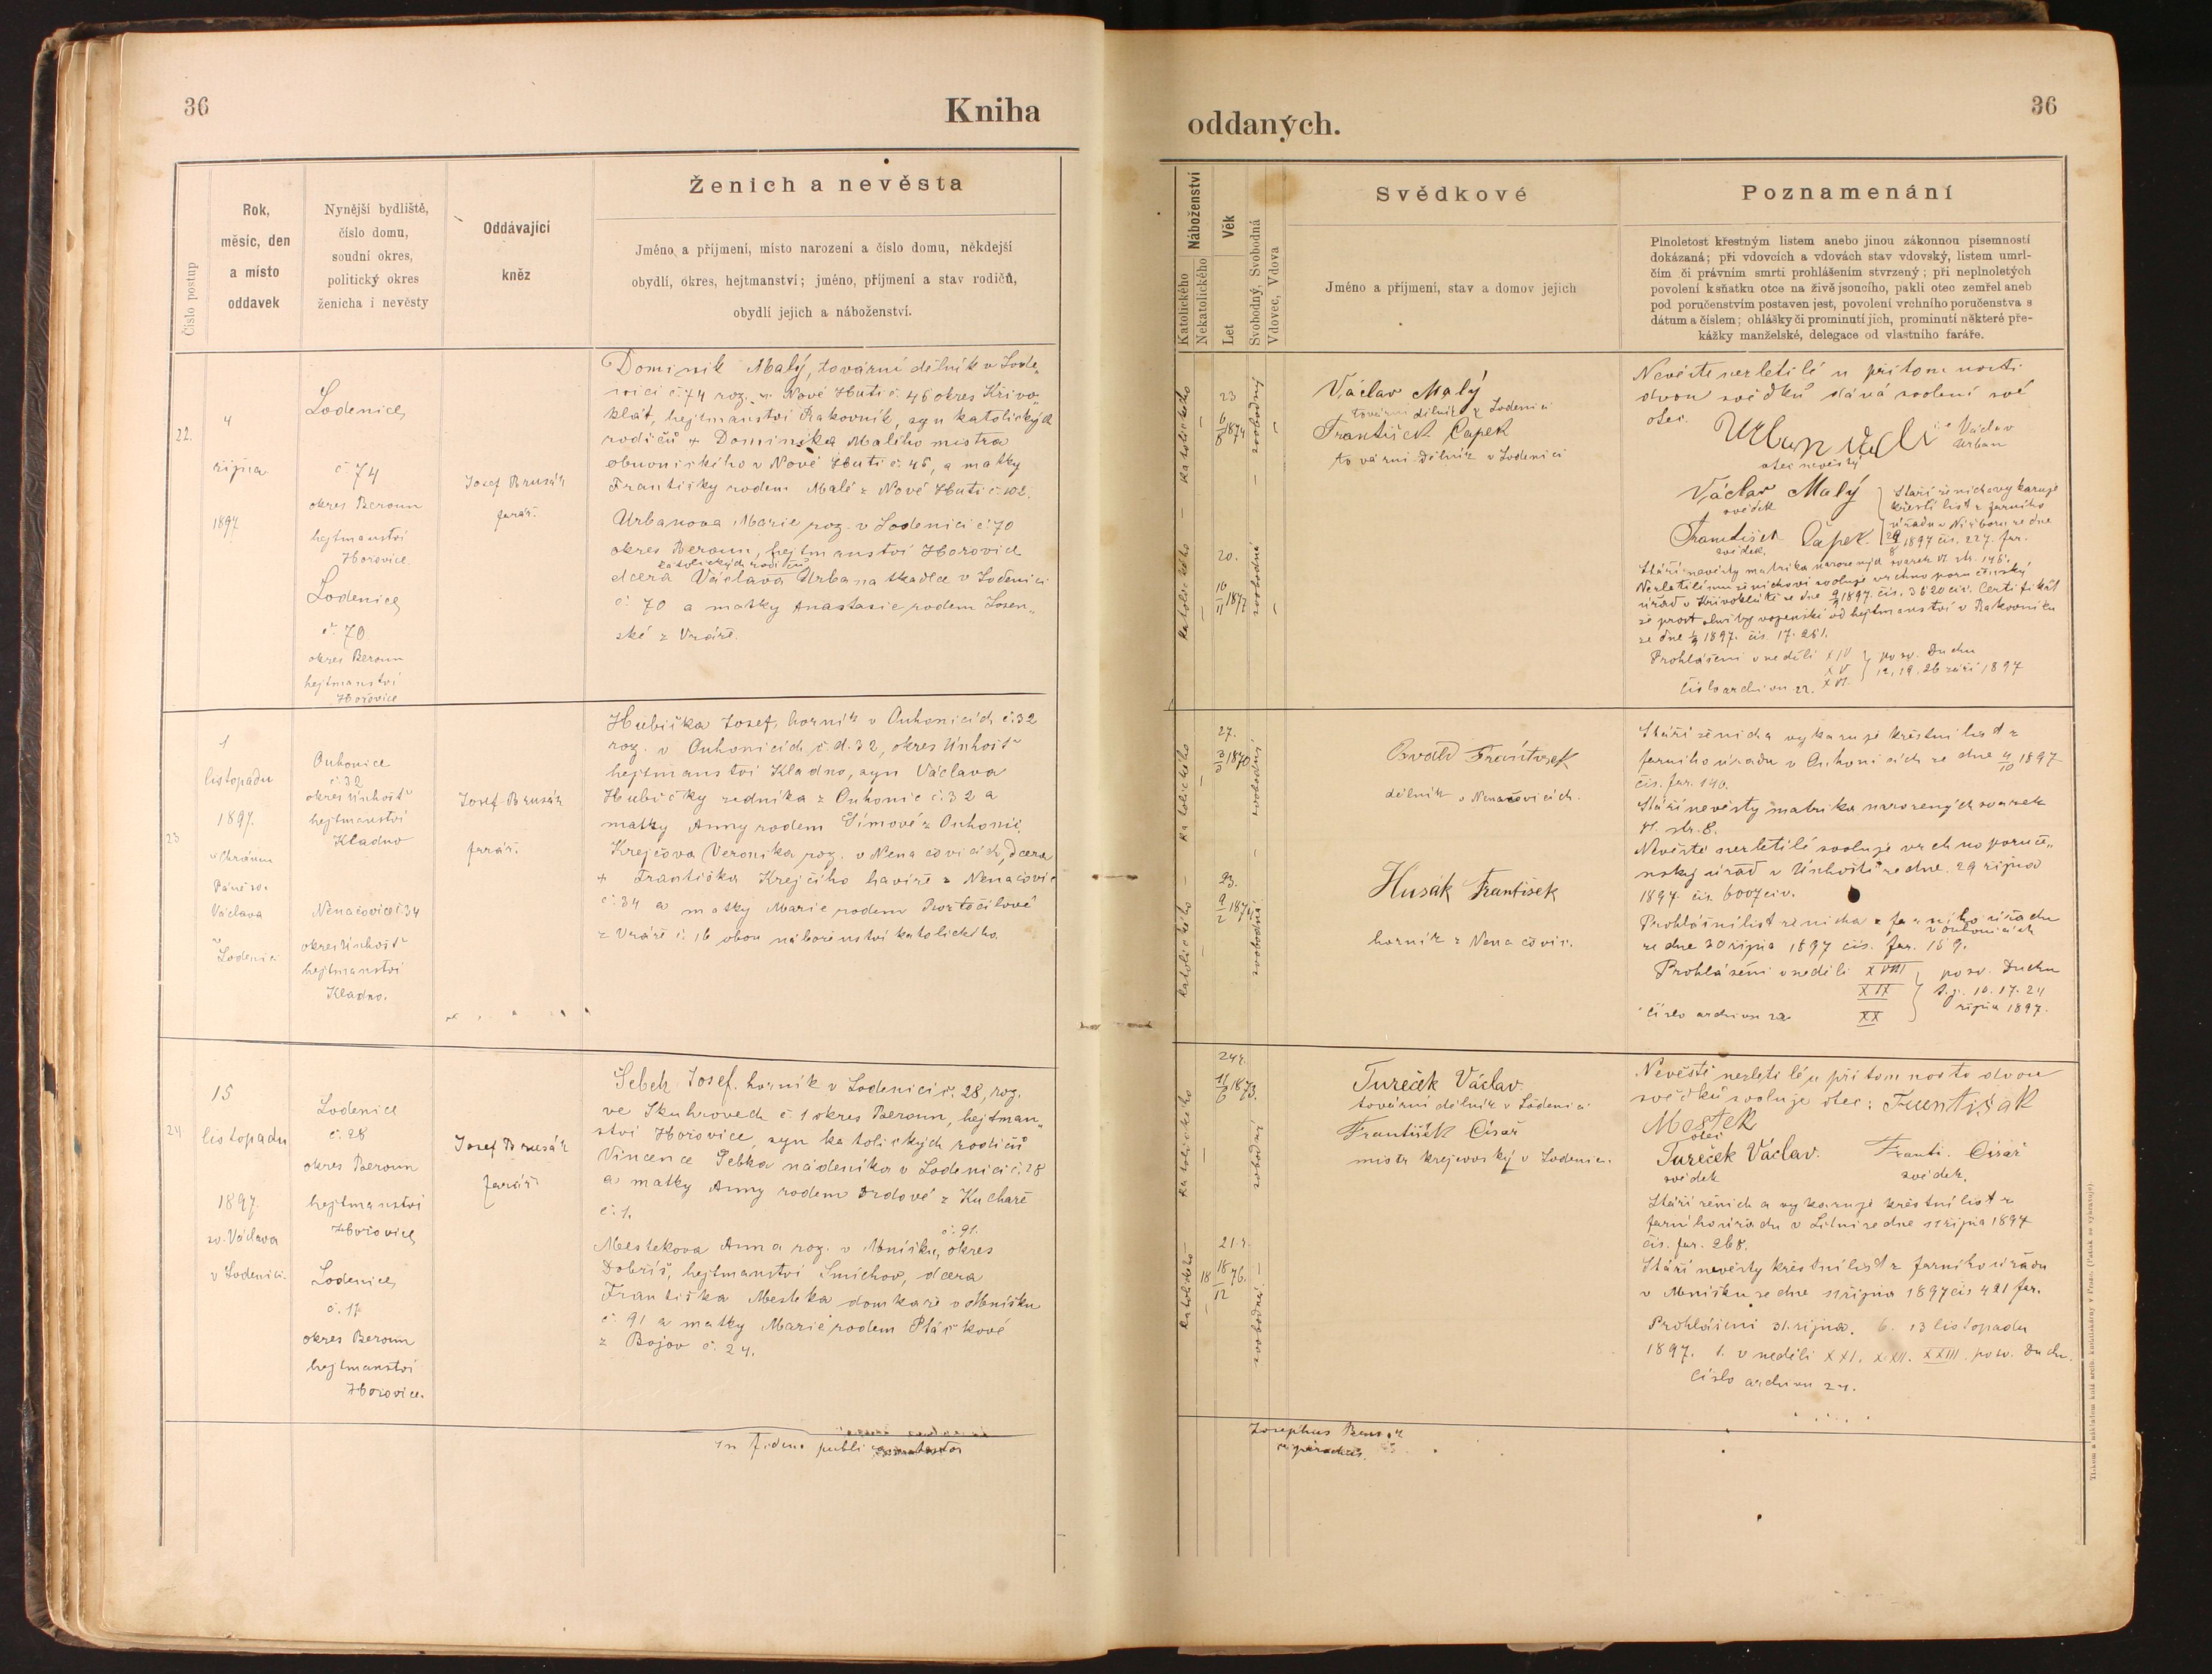 36
Kniha
Číslo postup
Rok,
měsíc, den
a místo
oddavek
Nynější bydliště,
číslo domu,
soudní okres,
politický okres
ženicha i nevěsty
Oddávající
kněz
Ženich a nevěsta
Jméno a příjmení, místo narození a číslo domu, někdejší
obydlí, okres, hejtmanství; jméno, příjmení a stav rodičů,
obydlí jejich a náboženství.
22.
4
října
1897
Lodenice
č. 74
okres Beroun
hejtmanství
Hořovice
Lodenice
č. 70
okres Beroun
hejtmanství
Hořovice
Josef Brusák
farář.
Dominik Malý, tovární dělník v Lode„
nici č. 74 roz. v Nové Huti č. 46 okres Křivo„
klát, hejtmanství Rakovník, syn katolických
rodičů + Dominika Malého mistra
v Nové Huti č. 46, a matky
Františky rodem Malé z Nové Huti č. 102.
Urbanova Marie roz. v Lodenici č. 70
okres Beroun, hejtmanství Hořovice
katolických rodičů
dcera Václava Urbana tkadlce v Lodenici
č. 70 a matky Anastasie rodem Josen„
ské z Vráže.
23
1
listopadu
1897.
v chrámu
Páně sv.
Václava
v Lodenici
Ouhonice
č. 32
okres Únhošť
hejtmanství
Kladno
Nenačovice č. 34
okres Únhošť
hejtmanství
Kladno.
Josef Brusák
farář.
Hubička Josef, horník v Ouhonicích č. 32
roz. v Ouhonicích č. d. 32, okres Únhošť
hejtmanství Kladno, syn Václava
Hubičky zedníka z Ouhonic č. 32 a
matky Anny rodem Šímové z Ouhonic.
Krejčova Veronika roz. v Nenačovicích, dcera
+ Františka Krejčího havíře z Nenačovic
č. 34 a matky Marie rodem
z Vráže č. 16 obou náboženství katolického.
24
15
listopadu
1897.
sv. Václava
v Lodenici.
Lodenice
č. 28
okres Beroun
hejtmanství
Hořovice
Lodenice
č. 17
okres Beroun
hejtmanství
Hořovice.
Josef Brusák
farář.
Šebek Josef, horník v Lodenici č. 28, roz.
ve Skuhrovech č. 1 okres Beroun, hejtman„
ství Hořovice, syn katolických rodičů
Vincence Šebka nádeníka v Lodenici č. 28
a matky Anny rodem Drdové z Kuchaře
č. 1.
č. 91.
Mestekova Anna roz. v Mníšku, okres
Dobříš, hejtmanství Smíchov, dcera
Františka Mesteka domkáře v Mníšku
č. 91 a matky Marie rodem Ptáčkové
z Bojov č. 24.
In fidem publicam
36
oddaných.
Náboženství
Katolického
Nekatolického
Věk
Let
Svobodný, Svobodná
Vdovec, Vdova
Svědkové
Jméno a příjmení, stav a domov jejich
Poznamenání
Plnoletost křestným listem anebo jinou zákonnou písemností
dokázaná; při vdovcích a vdovách stav vdovský, listem umrl-
čím či právním smrti prohlášením stvrzený; při neplnoletých
povolení k sňatku otce na živě jsoucího, pakli otec zemřel aneb
pod poručenstvím postaven jest, povolení vrchního poručenstva s
dátum a číslem; ohlášky či prominutí jich, prominutí některé pře-
kážky manželské, delegace od vlastního faráře.
katolického
23
6/8 1874
svobodný
katolického
20.
16/11 1877
svobodná
Václav Malý
tovární dělník z Lodenic
František Čapek
tovární dělník v Lodenici
Nevěstě nezletilé u přítomnosti
dvou svědků dává svolení své
otec.
Urban Václav
Václav
Urban
otec nevěsty
Václav Malý
svědek
František Čapek
svědek.
Stáří ženichovy karuje
křestní list z farního
úřadu v Nižboru ze dne
29/8 1897 čís. 227. far.
Stáří nevěsty matrika narozených svazek VI. str. 146.
Nezletilému ženichovi svoluje vrchno poručenský
úřad v Křivoklátě ze dne 9/9 1897. čís. 3620 civ. Certifikát
že prost služby vojenské od hejtmanství v Rakovníku
ze dne 1897. čís. 17.261.
Prohlášení v neděli XIV
XV
XVI.
po sv. Duchu
12, 19, 26 září 1897
Číslo archivu 22.
katolického
27.
3/3 1870
svobodný
katolického
23.
9/2 1874
svobodná
Osvald František
dělník v Nenačovicích.
Husák František
horník z Nenačovic.
Stáří ženicha vykazuje křestní list z
farního úřadu v Ouhonicích ze dne 4/10 1897
čís. far. 140.
Stáří nevěsty matrika narozených svazek
VI. str. 8.
Nevěstě nezletilé svoluje vrchno poruče„
nský úřad v Únhošti ze dne 29 října
1897 čís. 6007 civ.
Prohlášní list ženicha z farního úřadu
v Ouhonicích
ze dne 30 října 1897 čís. far. 159.
Prohlášení v neděli XVIII
XIX
XX
po sv. Duchu
t. j. 10. 17. 24
října 1897.
Číslo archivu 23
katolického
24 r.
11/6 1873.
svobodný
katolického
21 r.
18/12 1876.
svobodná
Tureček Václav.
tovární dělník v Lodenici
František Císař
mistr krejčovský v Lodenici.
Nevěstě nezletilé u přítomnosti dvou
svědků svoluje otec: František
Mestek
otec
Tureček Václav.
svědek
Franti. Císař
svědek.
Stáří ženicha vykazuje křestní list z
farního úřadu v Litni ze dne 11 října 1897
čís. far. 268.
Stáří nevěsty křestní list z farního úřadu
v Mníšku ze dne 11 října 1897 čís 421 far.
Prohlášení 31. října. 6. 13 listopadu
1897. t. v neděli XXI. XXII. XXIII. po sv. Duchu.
Číslo archivu 24.
Josephus Brusák
parochus.